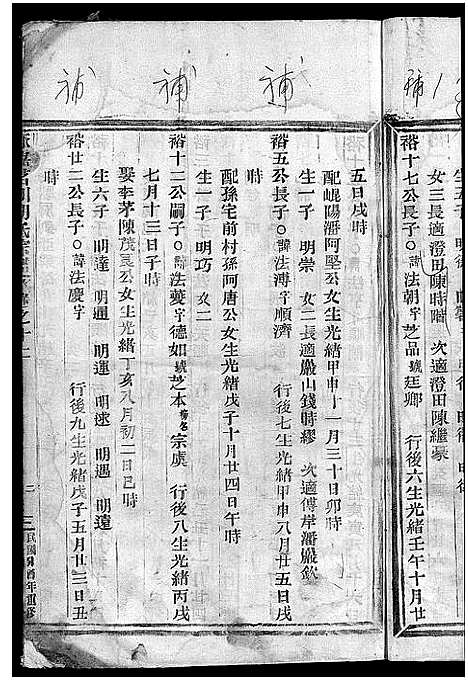 補
女三長適澄田陳時階 次適澄田陳繼豪
裕十七公長子○諱法朝字芝品號廷卿 行後六生光緒壬午十月廿
補
補
補
五日戌時
配崐陽潘阿堅公女生光緒甲申十一月三十日卯時
生一子 明崇 女二長適巖山錢時繆 次適傅岸潘嚴欽
裕五公長子○諱法溥字順濟 行後七生光緒甲申八月廿五日戌
時
配孫宅前村孫阿唐公女生光緒戊子十月廿四日午時
生一子 明巧 女二
裕十二公嗣子○諱法夔字德如號芝本榜名宗虞 行後八生光緒丙戌
七月十三日子時
娶李茅陳茂良公女生光緒丁亥八月初二日巳時
生六子 明達 明通 明運 明速 明遇 明遠
裕廿二公長子○諱法慶字 行後九生光緒戊子五月廿三日丑
時
三
民國 酉年重修